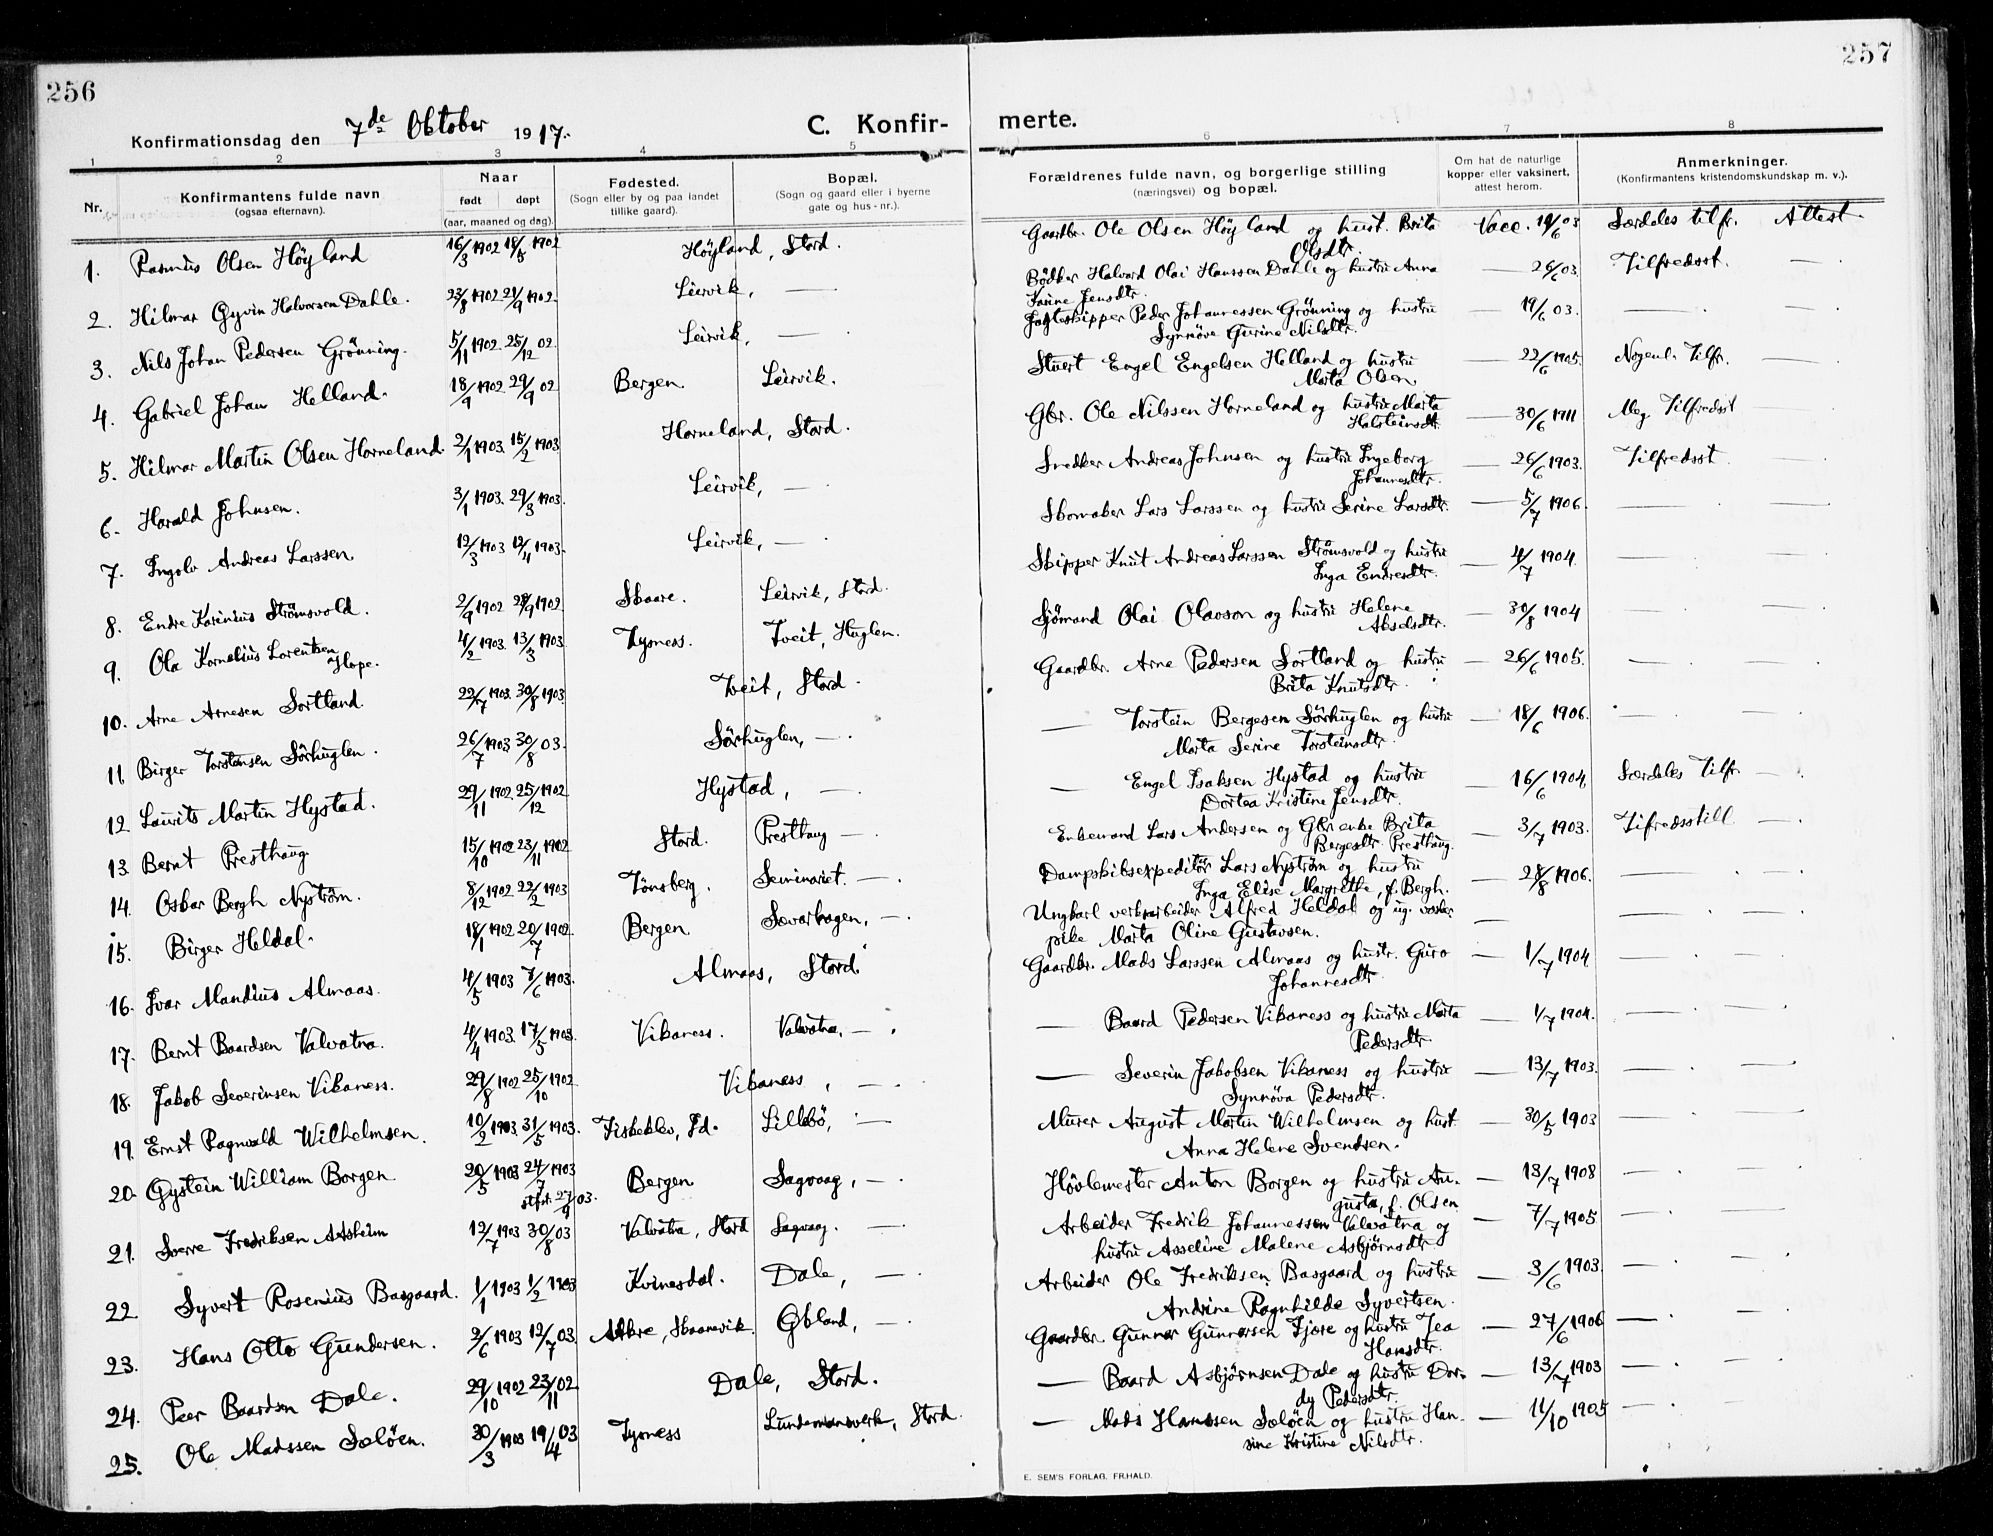 256
257
Konfirmationsdag den 7de Oktober 1917.
C. Konfir-
merte.
1 2 3 4 5 6 7 8
Nr.
Konfirmantens fulde navn
(ogsaa efternavn).
Naar
født døpt
(aar, maaned og dag).
Fødested.
(Sogn eller by og paa landet
tillike gaard).
Bopæl.
(Sogn og gaard eller i byerne
gate og hus-nr.).
Forældrenes fulde navn, og borgerlige stilling
(næringsvei) og bopæl.
Om hat de naturlige
kopper eller vaksinert,
attest herom.
Anmerkninger.
(Konfirmantens kristendomskundskap m. v.).
1. Rasmus Olsen Höyland 16/3 1902 18/5 1902 Höyland, Stord. Gaardbr. Ole Olsen Höyland og hust. Brita Vacc. 19/6 03 Særdeles tilfr. Attest
Olsdtr.
2. Hilmar Øyvin Halvorsen Dahle. 23/8 1902 21/9 1902. Leirvik, — Bödker Halvard Olai Hanssen Dahle og hustru Anna — 26/6 03. Tilfredsst. —
Karine Jensdtr.
3. Nils Johan Pedersen Grönning. 5/11 1902 25/12 02. Leirvik, — Jagteskipper Peder Johannessen Grönning og hustru — 19/6 03. — —
Synnöve Gurine Nilsdtr.
4. Gabriel Johan Helland. 18/9 1902 29/9 02 Bergen. Leirvik. Stuert Engel Engelsen Helland og hustru — 22/6 1905. Nogenl. Tilfr. —
Marta Olsen.
5. Hilmar Martin Olsen Horneland. 2/1 1903. 15/2 1903 Horneland, Stord. Gbr. Ole Nilssen Horneland og hustru Marta — 30/6 1911 Meg. Tilfredsst —
Halsteinsdtr.
6. Harald Johnsen. 3/1 1903. 29/3 1903. Leirvik, — Snedker Andreas Johnsen og hustru Ingeborg — 26/6 1903. Tilfredsst. —
Johannesdtr.
7. Ingolv Andreas Larssen 12/3 1903 12/4 1903. Leirvik, — Skomaker Lars Larssen og hustru Serine Larsdtr. — 5/7 1906. — —
8. Endre Karinius Strömsvold. 2/9 1902 28/9 1902 Skaare. Leirvik, Stord. Skipper Knut Andreas Larssen Strömsvold og hustru — 4/7 1904. — —
Inga Endresdtr.
9. Ola Kornelius Lorentsen 4/2 1903. 13/3 1903 Tysness. Tveit, Huglen. Sjömand Olai Olavson og hustru Helene — 30/8 1904 — —
Hope. Akselsdtr.
10. Arne Arnesen Sortland. 22/7 1903. 30/8 1903. Tveit, Stord. Gaardbr. Arne Pedersen Sortland og hustru — 26/6 1905. — —
Brita Knutsdtr.
11. Birger Torstensen Sörhuglen. 26/7 1903 30/8 03. Sörhuglen, — — Torstein Bergesen Sörhuglen og hustru — 18/6 1906. — —
Marta Serine Torsteinsdtr.
12 Laurits Martin Hystad. 29/11 1902. 25/12 1902 Hystad, — — Engel Isaksen Hystad og hustru — 16/6 1904 Særdeles Tilfr. —
Dortea Kristine Jensdtr.
13. Bernt Presthaug 15/10 1902 23/11 1902 Stord. Presthaug — Enkemand Lars Andersen og Gbr enke Brita — 3/7 1903. Tilfredsstill —
Bergesdtr. Presthaug.
14. Oskar Bergh Nyström. 8/12 1902 22/2 1903 Tönsberg. Seminariet. — Dampskibsexpeditör Lars Nyström og hustru — 28/8 1906. — —
Inga Elise Margrethe, f. Bergh.
15. Birger Heldal. 18/1 1902 20/7 1902. Bergen. Sævarhagen, — Ungkarl verksarbeider Alfred Heldal og ug. — — —
pike Marta Oline Gustavsen.
16. Ivar Mandius Almaas. 4/5 1903 7/6 1903. Almaas, Stord. Gaardbr. Mads Larssen Almaas og hustr. Guro — 1/7 1904 — —
Johannesdtr.
17. Bernt Baardsen Valvatna. 4/4 1903. 17/5 1903. Vikaness. Valvatna, — — Baard Pedersen Vikaness og hustru Marta — 1/7 1904. — —
Pedersdtr
18. Jakob Severinsen Vikaness. 29/8 1902 25/10 1902 Vikaness, — — Severin Jakobsen Vikaness og hustru — 13/7 1903. — —
Synnöva Pedersdtr.
19. Ernst Ragnvald Wilhelmsen. 10/2 1903. 31/5 1903. Fiskeklev, Id. Lillebö, — Murer August Martin Wilhelmsen og hust. — 30/5 1903 — —
Anna Helene Svendsen.
20. Øystein William Borgen 20/5 1903 24/7 1903 Bergen Sagvaag, — Hövlemester Anton Borgen og hustru Au- — 13/7 1908 — —
stfst. 27/9 03. gusta, f. Olsen
21. Sverre Fredriksen Aasheim 12/7 1903 30/8 03 Valvatna, Stord Sagvaag. — Arbeider Fredrik Johannessen Valvatna og — 7/7 1905 — —
hustru Asseline Malene Asbjörnsdtr.
22 Syvert Rosenius Basgaard. 1/1 1903 1/2 1903 Kvinesdal. Dale, — Arbeider Ole Fredriksen Baagaard og hustru — 3/6 1903. — —
Andrine Ragnhilde Syvertsen.
23. Hans Otto Gundersen. 2/6 1903 12/7 03. Akre, Skaanevik. Økland, — Gaardbr. Gunnar Gunnarsen Fjære og hustru Tea — 27/6 1906 — —
Hansdtr.
24. Peer Baardsen Dale. 29/10 1902 23/11 02 Dale, Stord. — Baard Asbjörnsen Dale og hustru Dor- — 13/7 1903 — —
dy Pedersdtr.
25. Ole Madssen Sælöen. 30/3 1903 19/4 03 Tysness Lundemansverk, Stord. — Mads Hanssen Sælöen og hustru Han- — 11/10 1905 — —
sine Kristine Nilsdtr.
E. SEM'S FORLAG, FR.HALD.